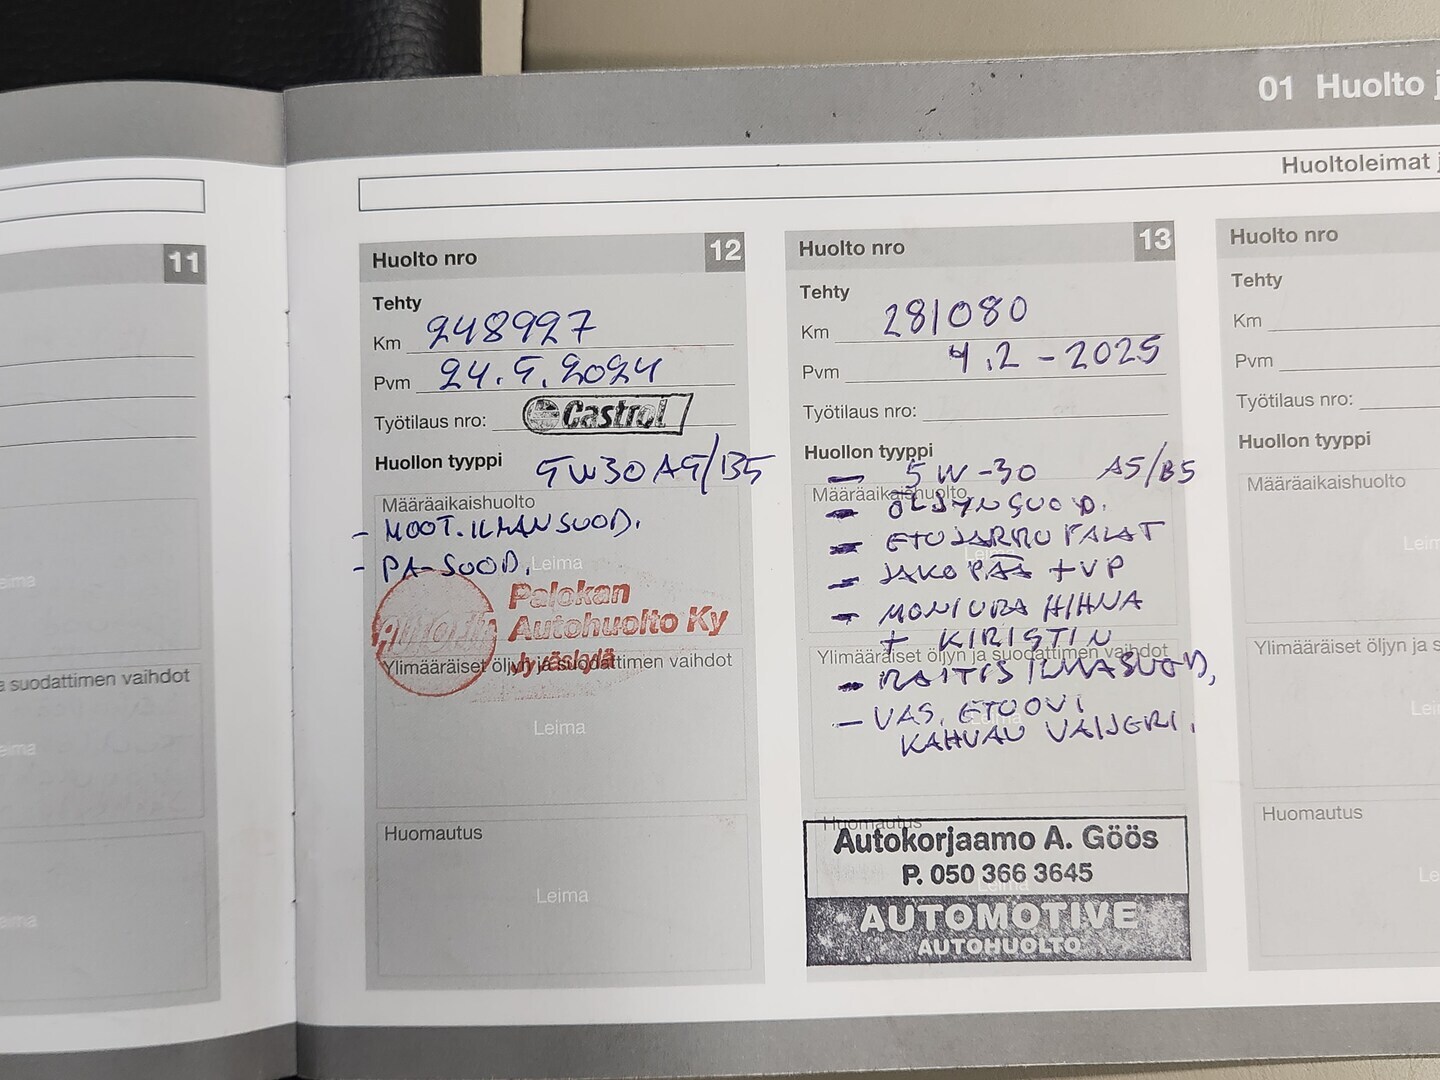 01 Huolto j
Huoltoleimat j
11
a suodattimen vaihdot
eima
eima
eima
Huolto nro 12
Tehty
Km 248927
Pvm 24.5.2024
Työtilaus nro: Castrol
Huollon tyyppi 5W30 A5/B5
Määräaikaishuolto
- MOOT.ILMANSUOD.
- PA-SUOD.
Leima
Palokan
Autohuolto Ky
Jyväskylä
Ylimääräiset öljyn ja suodattimen vaihdot
Leima
Huomautus
Leima
Huolto nro 13
Tehty
Km 281080
Pvm 4.2-2025
Työtilaus nro:
Huollon tyyppi
- 5W-30 A5/B5
Määräaikaishuolto
- ÖLJYNSUOD.
- ETUJARRU PALAT
Leima
- JAKOPÄÄ +VP
- MONIURA HIHNA
+ KIRISTIN
Ylimääräiset öljyn ja suodattimen vaihdot
- RAITIS ILMASUOD,
- VAS. ETUOVI
Leima
KAHVAN VAIJERI.
Huomautus
Autokorjaamo A. Göös
P. 050 366 3645
Leima
AUTOMOTIVE
AUTOHUOLTO
Huolto nro
Tehty
Km
Pvm
Työtilaus nro:
Huollon tyyppi
Määräaikaishuolto
Leim
Ylimääräiset öljyn ja s
Lei
Huomautus
Le